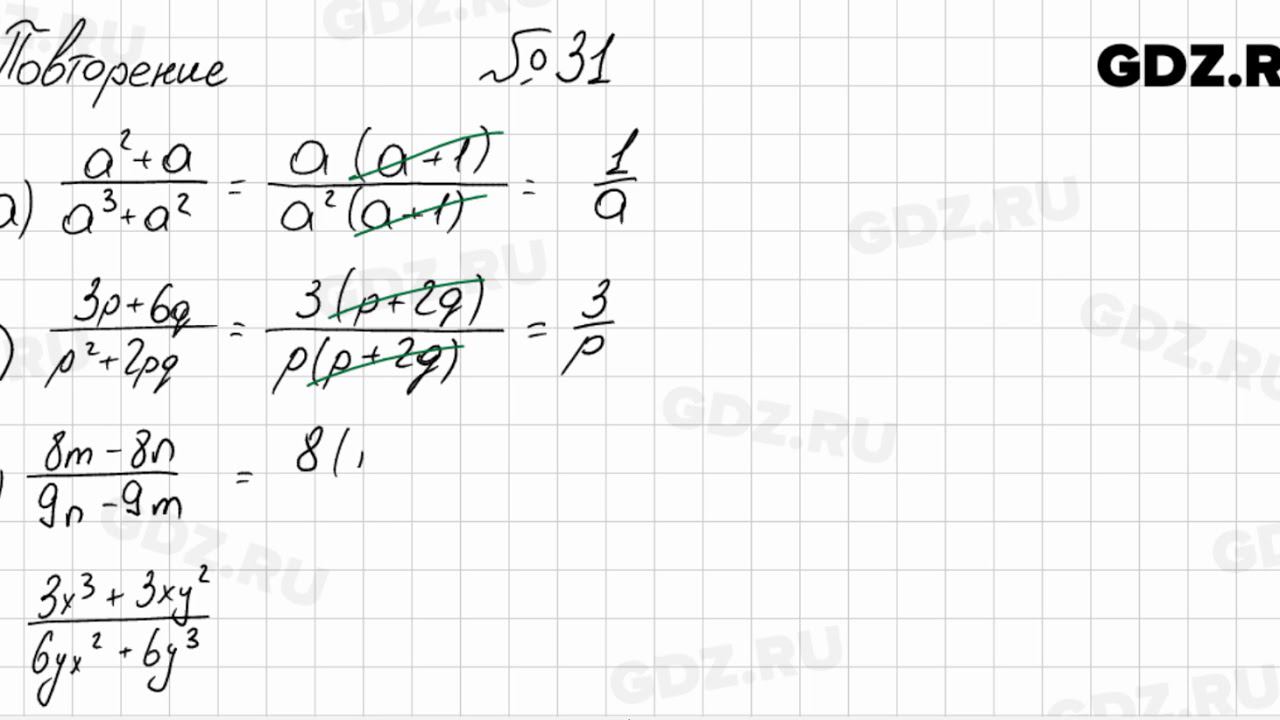 Повторение №31
GDZ.R
а) (a²+a)/(a³+a²) = (a(a+1))/(a²(a+1)) = 1/a
) (3p+6q)/(p²+2pq) = (3(p+2q))/(p(p+2q)) = 3/p
) (8m-8n)/(9n-9m) = 8(
(3x³+3xy²)/(6yx²+6y³)
GDZ.RU
GDZ.RU
GDZ.RU
GDZ.RU
GDZ.RU
GDZ.RU
GDZ.RU